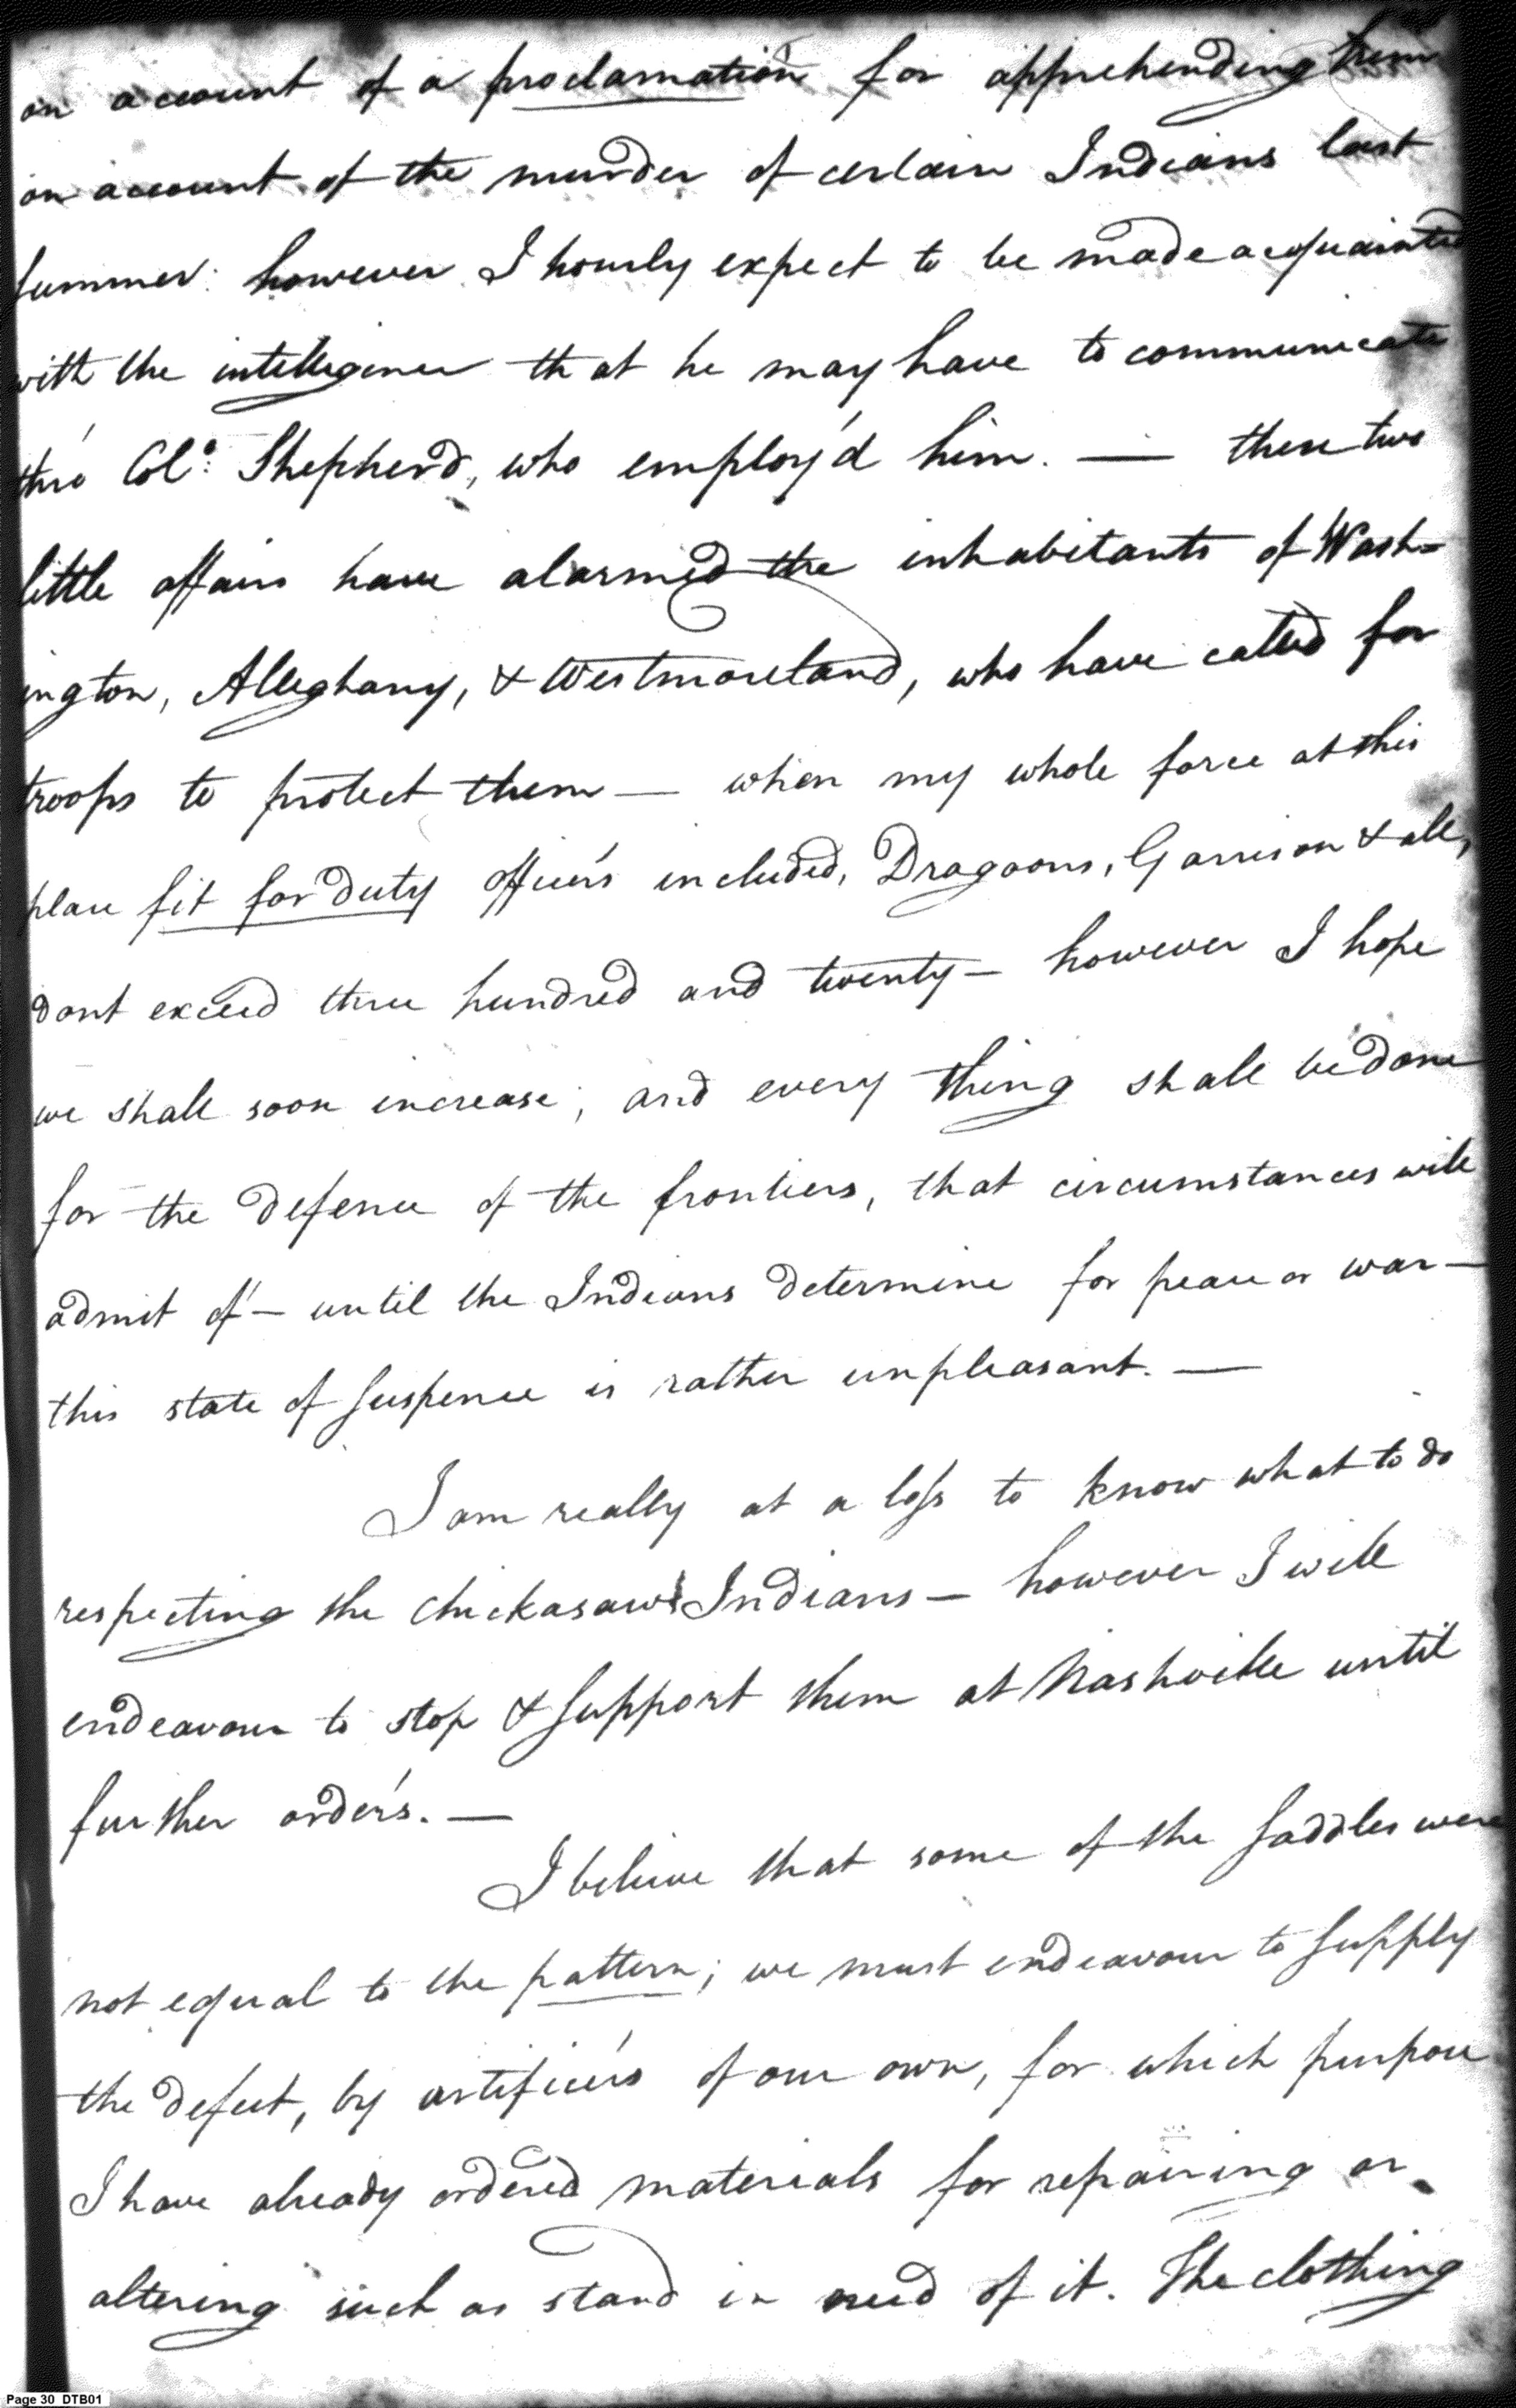 on account of a proclamation for apprehending him
on account of the murder of certain Indians last
summer: however I hourly expect to be made acquainted
with the intelligence that he may have to communicate
thro' Colo: Shepherd, who employ'd him. — these two
little affairs have alarmed the inhabitants of Wash=
ington, Alleghany, & Westmoreland, who have called for
troops to protect them — when my whole force at this
place fit for duty officers included, Dragoons, Garrison & all,
dont exceed three hundred and twenty — however I hope
we shall soon increase; and every thing shall be done
for the defence of the frontiers, that circumstances will
admit of — until the Indians determine for peace or war —
this state of suspence is rather unpleasant. —
I am really at a loss to know what to do
respecting the Chickasaws Indians — however I will
endeavour to stop & support them at Nashville until
further orders. —
I believe that some of the saddles were
not equal to the pattern; we must endeavour to supply
the defect, by artificers of our own, for which purpose
I have already ordered materials for repairing or
altering such as stand in need of it. The clothing
Page 30 DTB01